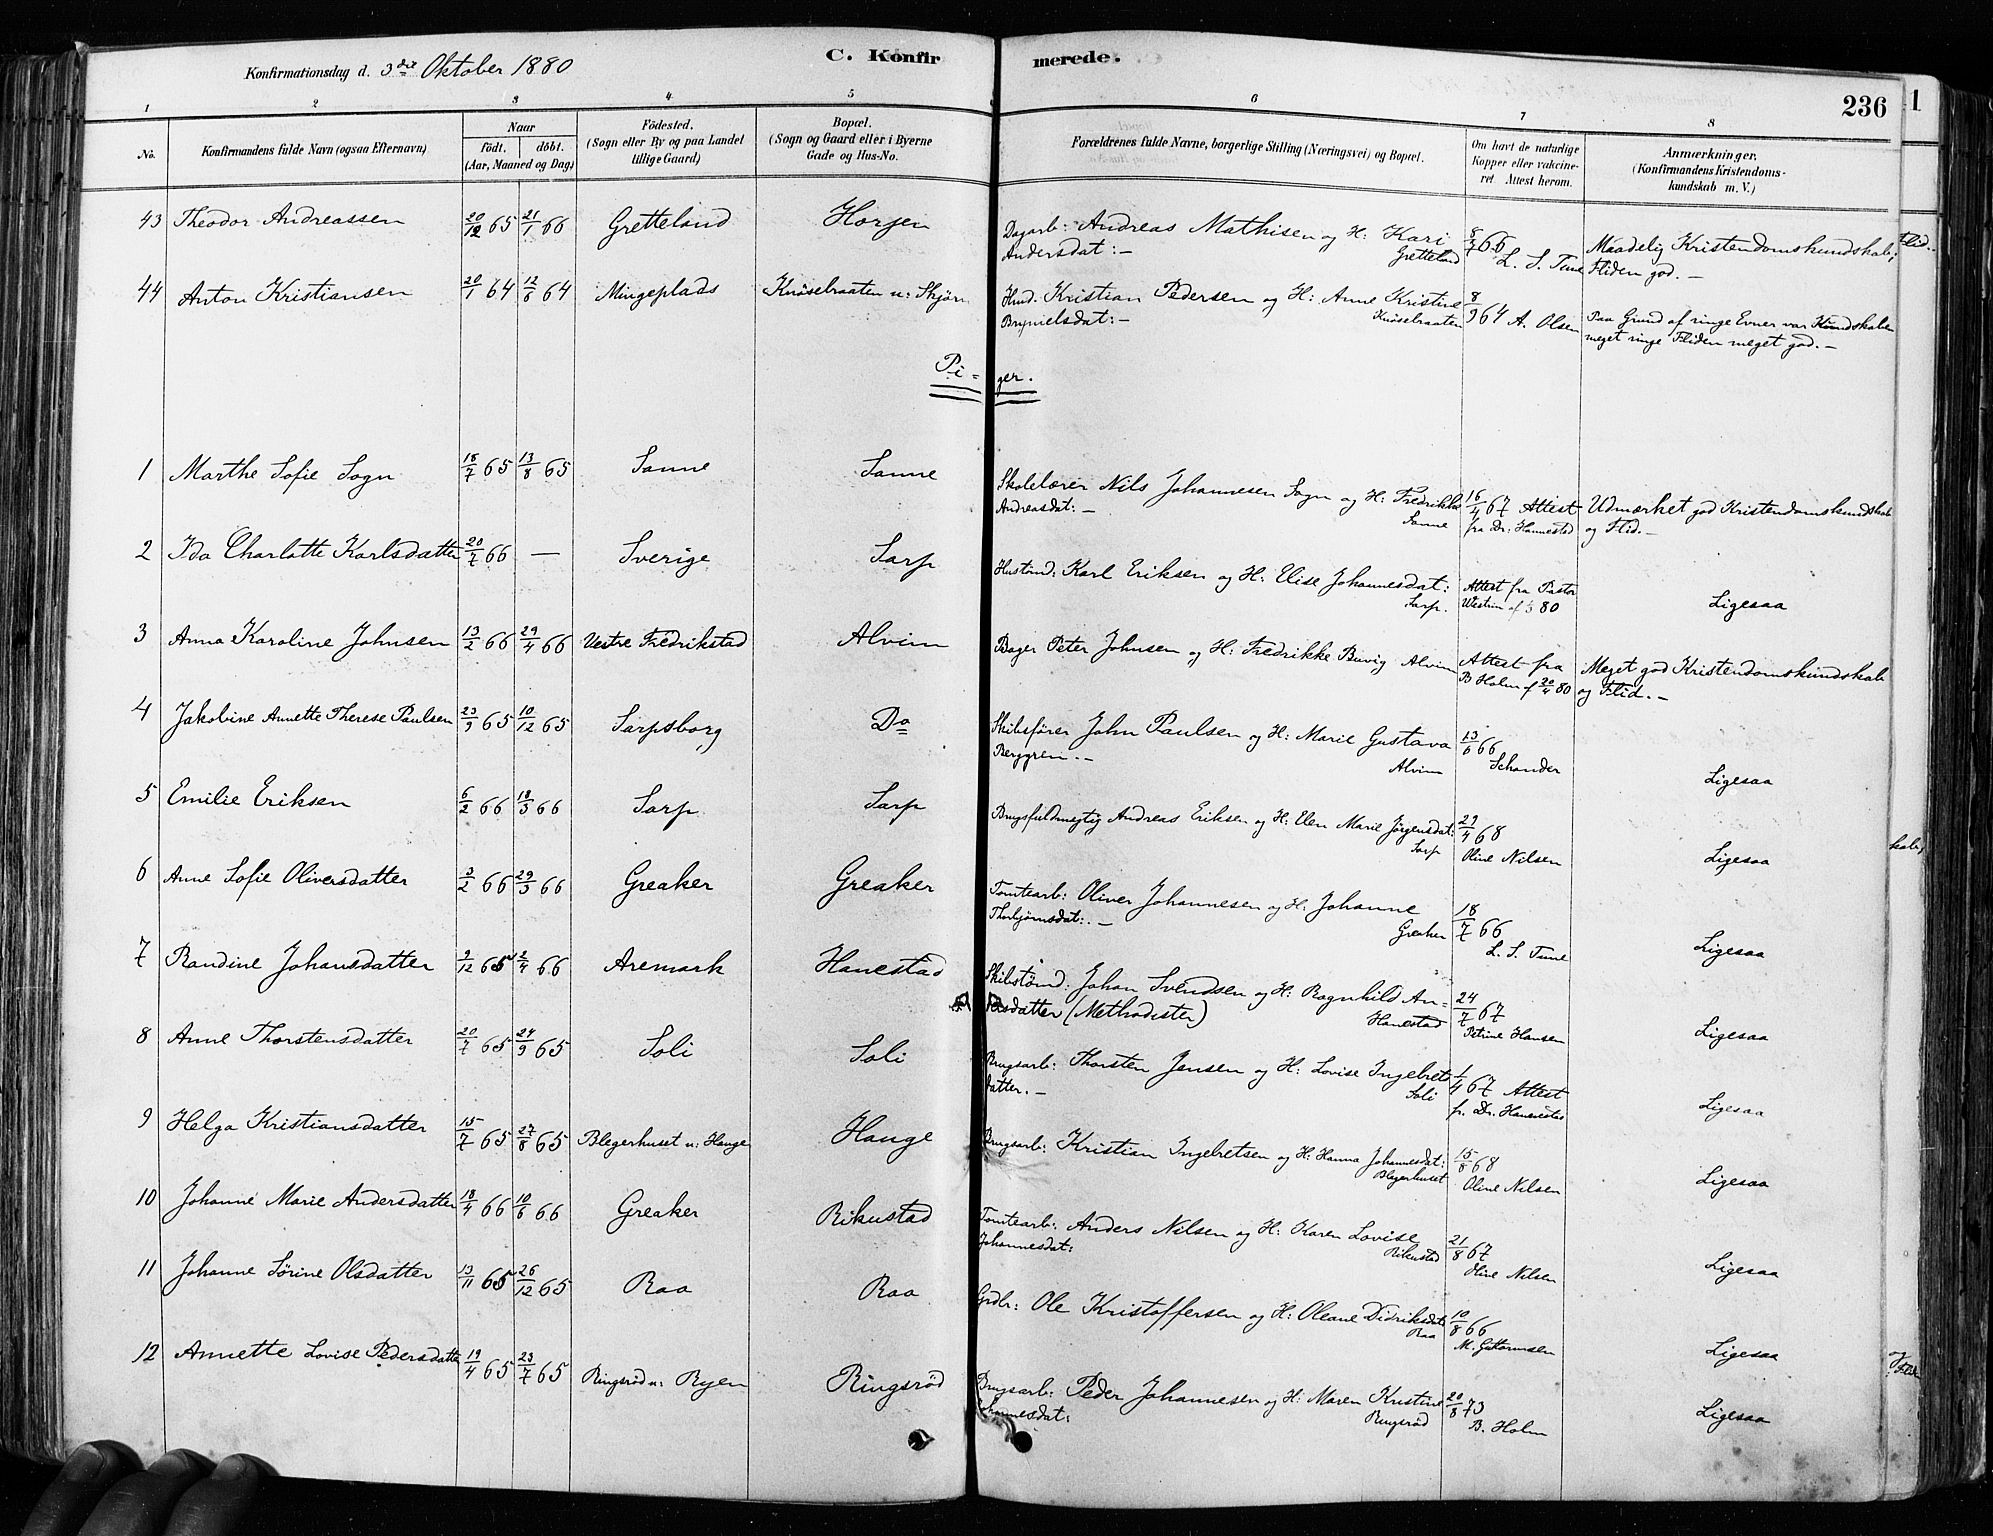 Konfirmationsdag d. 3die Oktober 1880
C. Konfir merede.
236
1 2 3 4 5 6 7 8
No. Konfirmandens fulde Navn (ogsaa Efternavn) Naar födt. döbt. (Aar, Maaned og Dag) Födested. (Sogn eller By og paa Landet tillige Gaard) Bopæl. (Sogn og Gaard eller i Byerne Gade og Hus-No. Forældrenes fulde Navne, borgerlige Stilling (Næringsvei) og Bopæl. Om havt de naturlige Kopper eller vakcineret. Attest herom. Anmærkninger. (Konfirmandens Kristendomskundskab m. V.)
43 Theodor Andreassen 20/12 65 21/1 66 Gretteland Horjen Dagarb: Andreas Mathisen og H: Kari 8/7 66 Maadelig Kristendomskundskab;
Andersdat:— Gretteland L. S. Tune Fliden god.—
44 Anton Kristiansen 20/1 64 12/6 64 Mingeplads Knöselraaten u: Skjörn Hmd: Kristian Pedersen og H: Anne Kristine 8/9 64 A. Olsen Paa Grund af ringe Evner var Kundskaben
Brynielsdat:— Knöselraaten meget ringe Fliden meget god.—
Pi= ger.
1 Marthe Sofie Sogn 18/7 65 13/8 65 Sanne Sanne Skolelærer Nils Johannesen Sogn og H: Fredrikke 16/4 67 Attest Udmærket god Kristendomskundskab
Andreasdat:— Sanne fra Dr. Hannestad og Flid.—
2 Ida Charlotte Karlsdatter 20/7 66 — Sverige Sarp Hustømd: Karl Eriksen og H: Elise Johannesdat: Attest fra Pastor
Sarp. 80 Ligesaa
3 Anna Karoline Johnsen 13/2 66 29/4 66 Vestre Fredrikstad Alvim Bager Peter Johnsen og H: Fredrikke Buvig Alvim Attest fra Meget god Kristendomskundskab
B Holm af 30/4 80 og Flid.—
4 Jakobine Annette Therese Paulsen 23/9 65 10/12 65 Sarpsborg Do Skibsfører John Paulsen og H: Marie Gustava 13/6 66
Berggren.— Alvim Schander Ligesaa
5 Emilie Eriksen 6/2 66 18/3 66 Sarp Sarp Brugsfuldmegtig Andreas Eriksen og H: Elen Marie Jørgensdat: 29/4 68
Sarp Oline Nilsen Ligesaa
6 Anne Sofie Oliversdatter 3/2 66 29/3 66 Greaker Greaker Tomtearb: Oliver Johannesen og H: Johanne 18/7 66
Thorbjørnsdat:.— Greaker L. S. Tune Ligesaa
7 Randine Johansdatter 9/12 65 2/4 66 Aremark Hanestad Skibstømd: Johan Svendsen og H: Ragnhild An- 24/7 67
dersdatter (Methodister) Hanestad Petrine Hansen Ligesaa
8 Anne Thorstensdatter 20/7 65 24/9 65 Soli Soli Brugsarb: Thorsten Jensen og H: Lovise Ingebrets 1/4 67 Attest
datter.— Soli fr. Dr. Hannestad Ligesaa
9 Helga Kristiansdatter 15/7 65 27/8 65 Blegerhuset u: Hauge Hauge Brugsarb: Kristian Ingebretsen og H: Hanna Johannesdat: 15/8 68
Blegerhuset Oline Nilsen Ligesaa
10 Johanne Marie Andersdatter 18/4 66 10/6 66 Greaker Rikustad Tomtearb: Anders Nilsen og H: Karen Lovise 21/8 67
Johannesdat: Rikustad Oline Nilsen Ligesaa
11 Johanne Sörine Olsdatter 13/11 65 26/12 65 Raa Raa Grdbr: Ole Kristoffersen og H: Oleane Didriksdat: 10/8 66
Raa M. Guttormsen Ligesaa
12 Annette Lovise Pedersdatter 19/4 65 23/7 65 Ringsröd u: Ryen Ringsröd Brugsarb: Peder Johannesen og H: Maren Kristine 20/8 73
Johannesdat: Ringsröd B. Holm Ligesaa